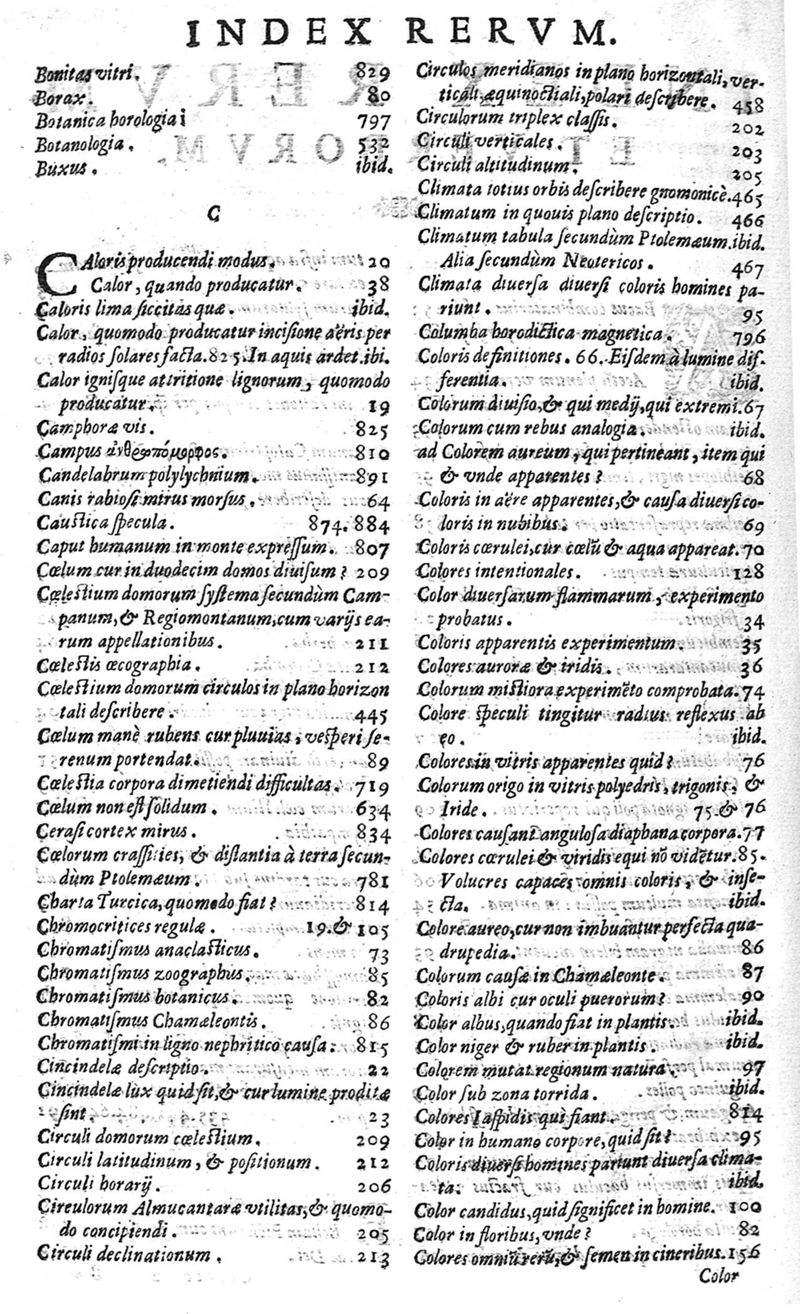 INDEX RERVM.
Bonitas vitri. 829
Borax. 80
Botanica horologia 797
Botanologia. 532
Buxus. ibid.
C
CAloris producendi modus. 20
Calor, quando producatur. 38
Caloris lima siccitas quæ. ibid.
Calor, quomodo producatur incisione aëris per
radios solares facta. 825. In aquis ardet. ibi.
Calor ignisque attritione lignorum, quomodo
producatur. 19
Camphoræ vis. 825
Campus ἀνθρωπόμορφος. 810
Candelabrum polylychnium. 891
Canis rabiosi mirus morsus. 64
Caustica specula. 874. 884
Caput humanum in monte expressum. 807
Cœlum cur in duodecim domos diuisum? 209
Cœlestium domorum systema secundùm Cam-
panum, & Regiomontanum, cum varijs ea-
rum appellationibus. 211
Cœlestis œcographia. 212
Cœlestium domorum circulos in plano horizon
tali describere. 445
Cœlum manè rubens cur pluuias, vesperi se-
renum portendat. 89
Cœlestia corpora dimetiendi difficultas. 719
Cœlum non est solidum. 634
Cerasi cortex mirus. 834
Cœlorum crassities, & distantia à terra secun-
dùm Ptolemæum. 781
Charta Turcica, quomodo fiat? 814
Chromocritices regulæ. 19. & 105
Chromatismus anaclasticus. 73
Chromatismus zoographus. 85
Chromatismus botanicus. 82
Chromatismus Chamæleontis. 86
Chromatismi in ligno nephritico causa. 815
Cincindelæ descriptio. 22
Cincindelæ lux quid sit, & cur lumine proditæ
sint. 23
Circuli domorum cœlestium. 209
Circuli latitudinum, & positionum. 212
Circuli horarij. 206
Circulorum Almucantaræ vtilitas, & quomo-
do concipiendi. 205
Circuli declinationum. 213
Circulos meridianos in plano horizontali, ver-
ticali æquinoctiali, polari describere. 458
Circulorum triplex classis. 202
Circuli verticales. 203
Circuli altitudinum. 205
Climata totius orbis describere gnomonicè. 465
Climatum in quouis plano descriptio. 466
Climatum tabula secundùm Ptolemæum. ibid.
Alia secundùm Neotericos. 467
Climata diuersa diuersi coloris homines pa-
riunt. 95
Columba horodictica magnetica. 796
Coloris definitiones. 66. Eisdem à lumine dif-
ferentia. ibid.
Colorum diuisio, & qui medij, qui extremi. 67
Colorum cum rebus analogia. ibid.
ad Colorem aureum, qui pertineant, item qui
& vnde apparentes? 68
Coloris in aëre apparentes, & causa diuersi co-
loris in nubibus. 69
Coloris cœrulei, cur cœlũ & aqua appareat. 70
Colores intentionales. 128
Color diuersarum flammarum, experimento
probatus. 34
Coloris apparentis experimentum. 35
Colores auroræ & iridis. 36
Colorum mistiora experimẽto comprobata. 74
Colore speculi tingitur radius reflexus ab
eo. ibid.
Colores in vitris apparentes quid? 76
Colorum origo in vitris polyedris, trigonis, &
Iride. 75. & 76
Colores causant angulosa diaphana corpora. 77
Colores cœrulei & viridis equi nõ vidẽtur. 85.
Volucres capaces omnis coloris, & inse-
cta. ibid.
Colore aureo, cur non imbuantur perfecta qua-
drupedia. 86
Colorum causæ in Chamæleonte. 87
Coloris albi cur oculi puerorum? 90
Color albus, quando fiat in plantis. ibid.
Color niger & ruber in plantis. ibid.
Colorem mutat regionum natura. 97
Color sub zona torrida. ibid.
Colores Iaspidis qui fiant. 814
Color in humano corpore, quid sit? 95
Coloris diuersi homines pariunt diuersa clima-
ta. ibid.
Color candidus, quid significet in homine. 100
Color in floribus, vnde? 82
Colores omniũ rerũ, & semen in cineribus. 156
Color